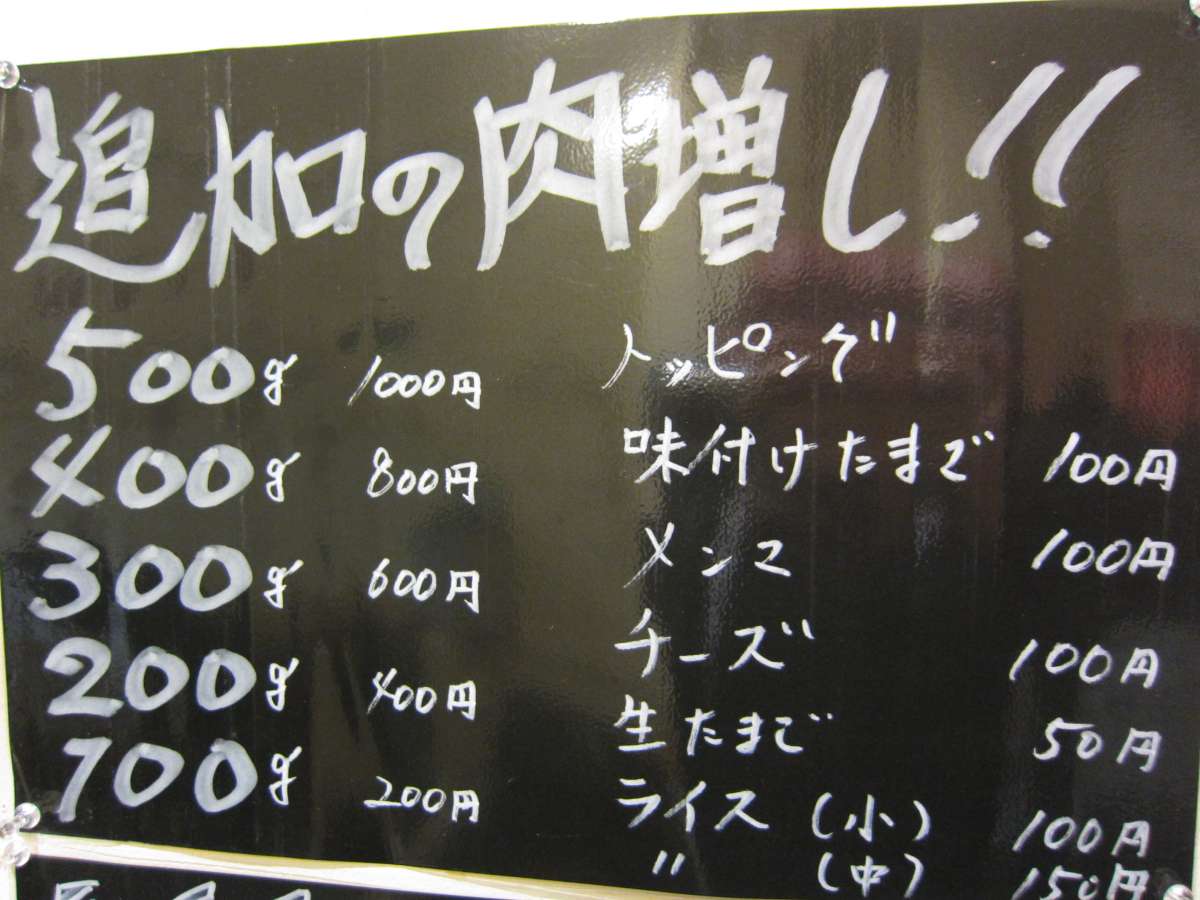 追加の肉増し!!
500g 1000円
400g 800円
300g 600円
200g 400円
100g 200円
トッピング
味付けたまご 100円
メンマ 100円
チーズ 100円
生たまご 50円
ライス (小) 100円
〃 (中) 150円